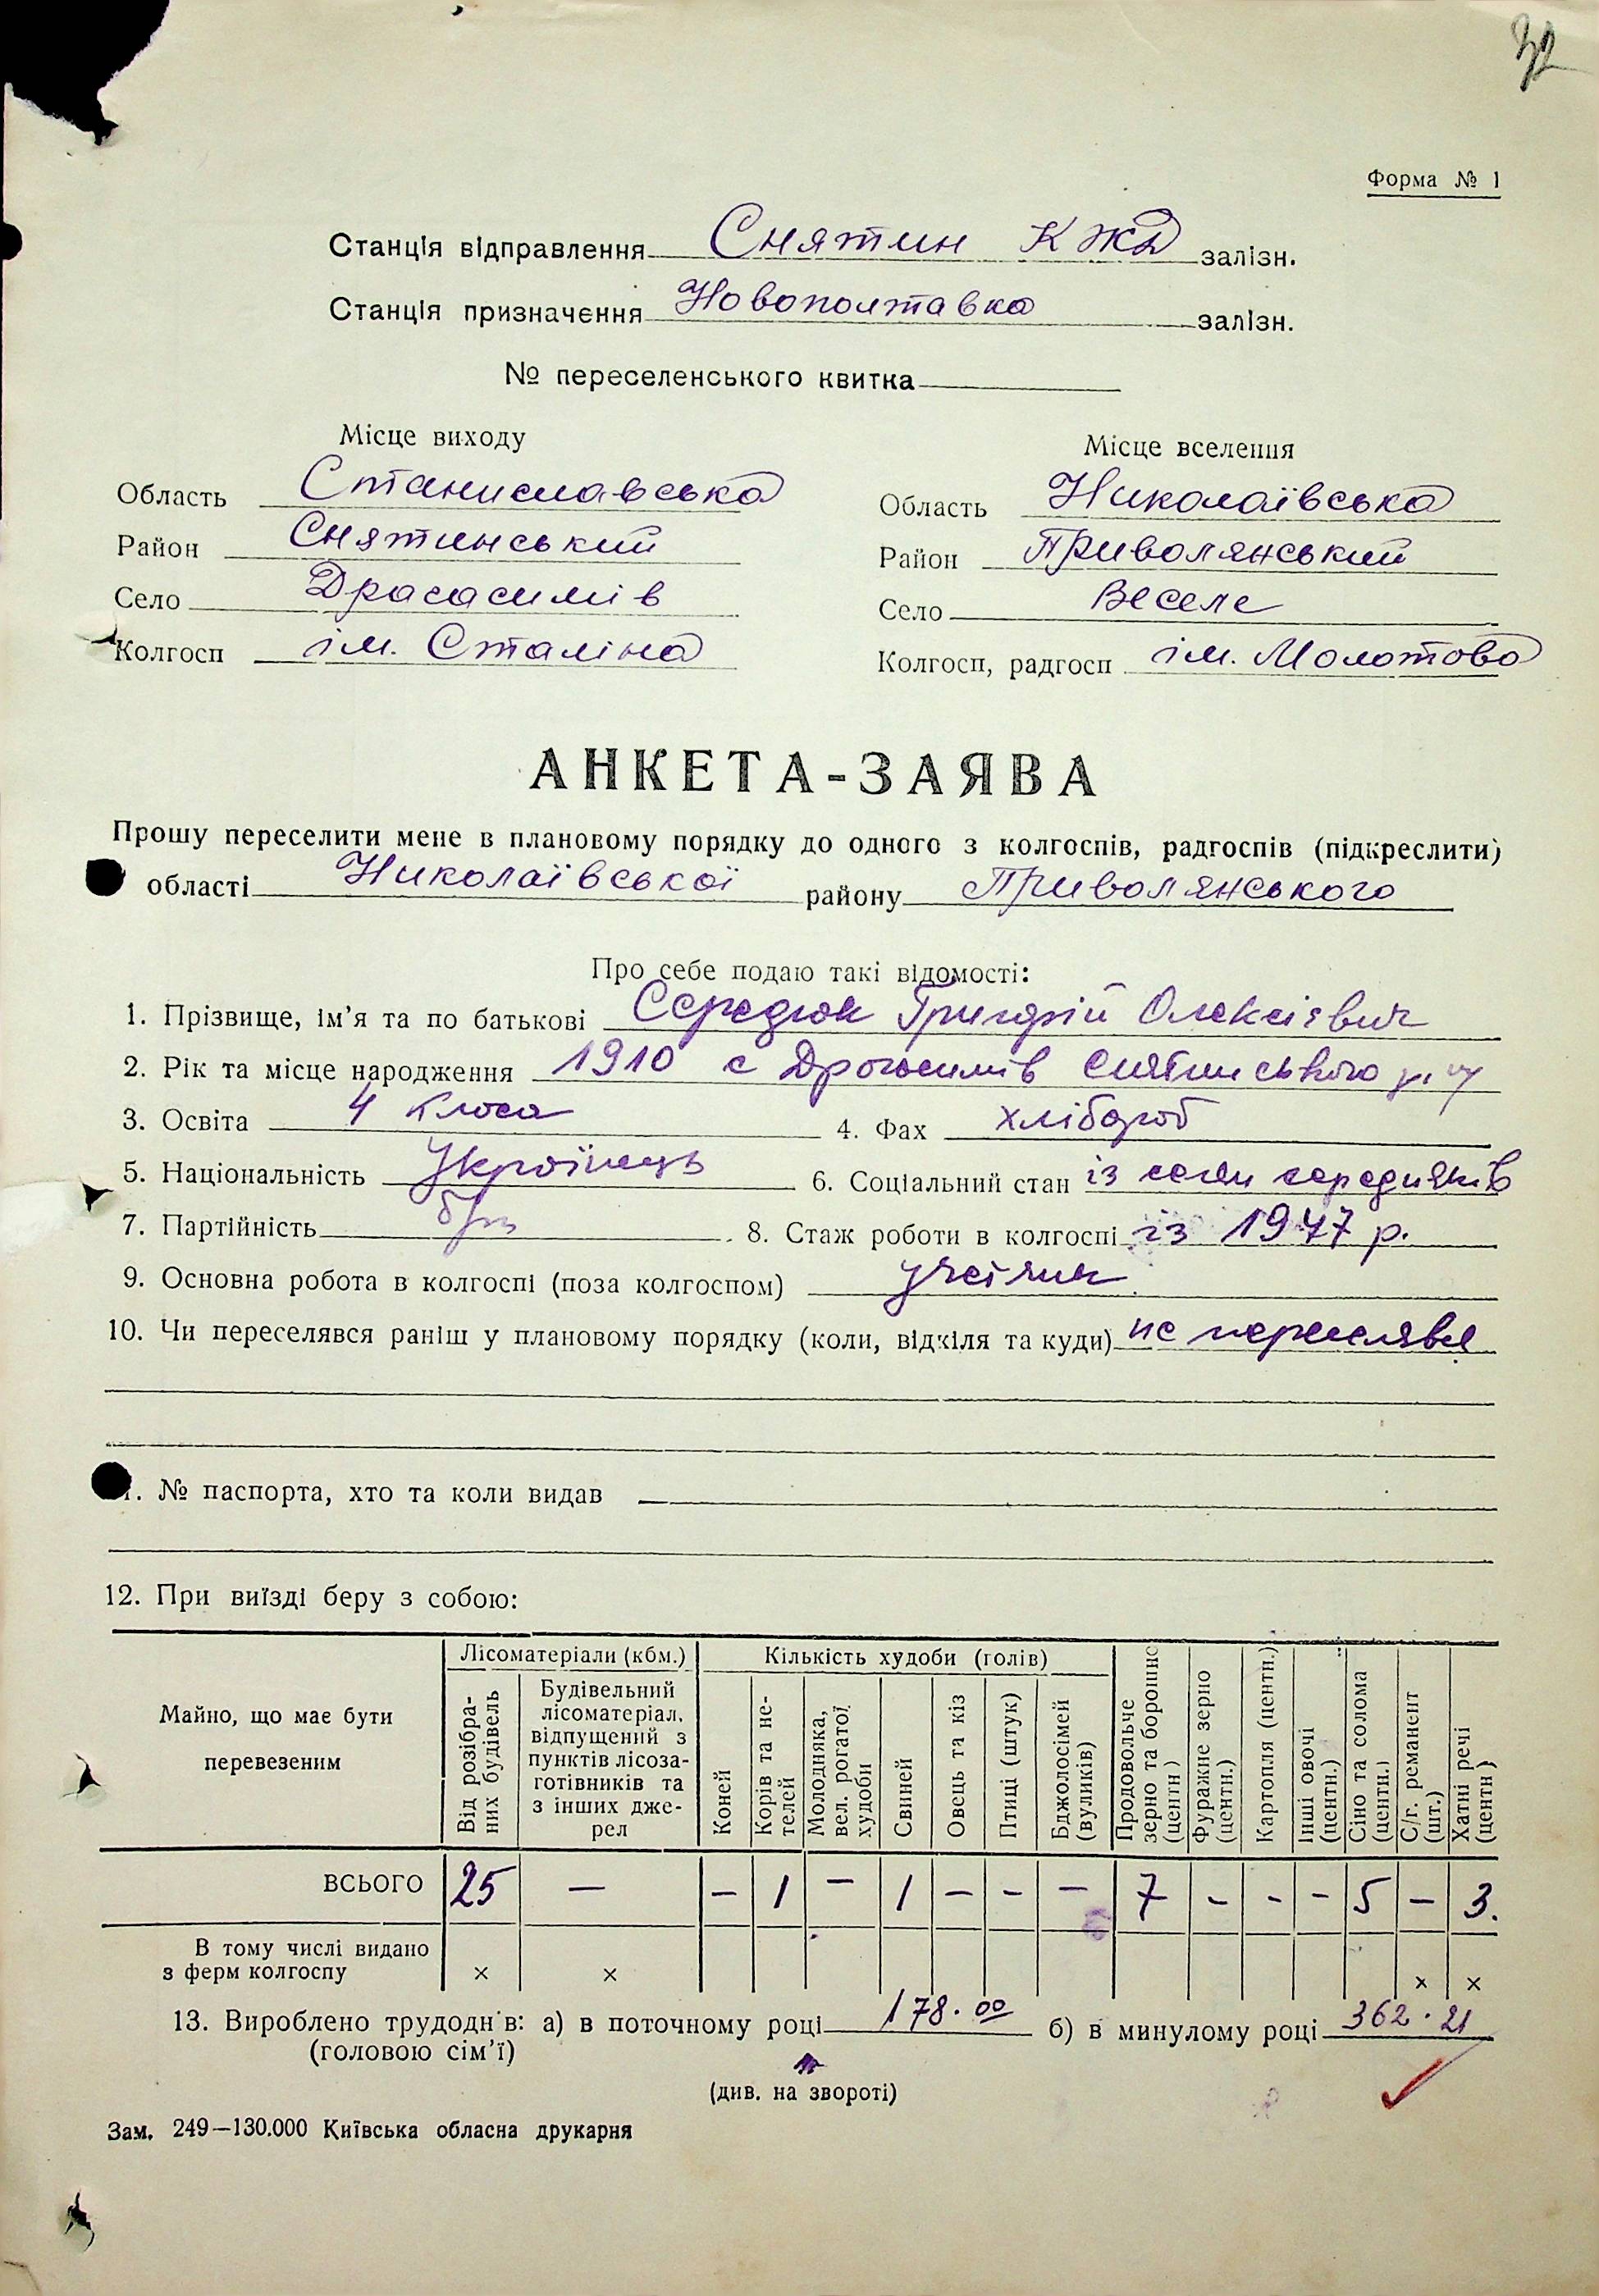 32
Форма № 1
Станція відправлення Снятин К ЖД залізн.
Станція призначення Новополтавка залізн.
№ переселенського квитка
Місце виходу
Місце вселення
Область Станиславська
Область Николаївська
Район Снятинський
Район Приволянський
Село Драсасимів
Село Веселе
Колгосп ім. Сталіна
Колгосп, радгосп ім. Молотова
АНКЕТА-ЗАЯВА
Прошу переселити мене в плановому порядку до одного з колгоспів, радгоспів (підкреслити)
області Николаївської району Приволянського
Про себе подаю такі відомості:
1. Прізвище, ім’я та по батькові Середюк Григорій Олексієвич
2. Рік та місце народження 1910 с Драгасимів Снятинського
3. Освіта 4 класа 4. Фах хлібороб
5. Національність Українець 6. Соціальний стан із селян середняків
7. Партійність б/п 8. Стаж роботи в колгоспі із 1947 р.
9. Основна робота в колгоспі (поза колгоспом)
10. Чи переселявся раніш у плановому порядку (коли, відкіля та куди) не переселявся
11. № паспорта, хто та коли видав
12. При виїзді беру з собою:
Майно, що має бути перевезеним
Лісоматеріали (кбм.)
Кількість худоби (голів)
Від розібраних будівель
Будівельний лісоматеріал, відпущений з пунктів лісозаготівників та з інших джерел
Коней
Корів та нетелей
Молодняка, вел. рогатої худоби
Свиней
Овець та кіз
Птиці (штук)
Бджолосімей (вуликів)
Продовольче зерно та борошно (центн)
Фуражне зерно (центн.)
Картопля (центн.)
Інші овочі (центн.)
Сіно та солома (центн.)
С/г. реманент (шт.)
Хатні речі (центн)
ВСЬОГО 25 — – 1 – 1 – – – 7 – - – 5 – 3.
В тому числі видано
з ферм колгоспу × × × ×
13. Вироблено трудоднів: а) в поточному році 178.00 б) в минулому році 362.21
(головою сім’ї)
(див. на звороті)
Зам. 249—130.000 Київська обласна друкарня